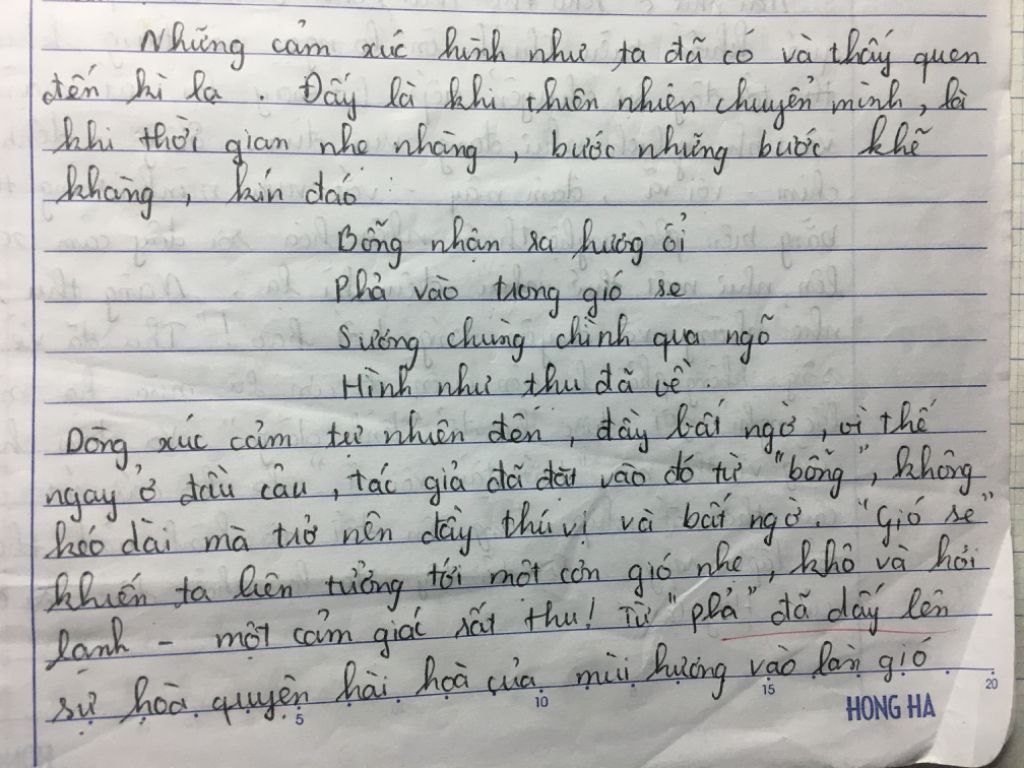 Những cảm xúc hình như ta đã có và thấy quen
đến kì lạ. Đấy là khi thiên nhiên chuyển mình, là
khi thời gian nhẹ nhàng, bước những bước khẽ
khàng, kín đáo
Bỗng nhận ra hương ổi
Phả vào trong gió se
Sương chùng chình qua ngõ
Hình như thu đã về.
Dòng xúc cảm tự nhiên đến, đầy bất ngờ, vì thế
ngay ở đầu câu, tác giả đã đặt vào đó từ "bỗng", không
kéo dài mà trở nên đầy thú vị và bất ngờ. "Gió se"
khiến ta liên tưởng tới một cơn gió nhẹ, khô và hơi
lạnh - một cảm giác rất thu! Từ "phả" đã dấy lên
sự hoà quyện hài hoà của mùi hương vào làn gió
5 10 15 20
HONG HA